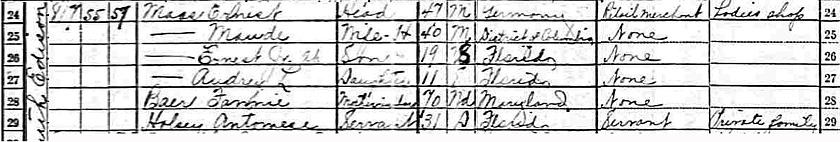 24 817 55 57 Mass Ernest Head 47 M Germany Retail merchant Ladies shop 24
25 — Maude Wife-H 40 M District of Columbia None 25
26 — Ernest Jr. Son 19 S Florida None 26
27 — Audrey L Daughter 11 Florida None 27
28 Baer Fannie Mother in law 70 Wd Maryland None 28
29 Holsey Antomese Servant 31 S Florida Servant Private family 29